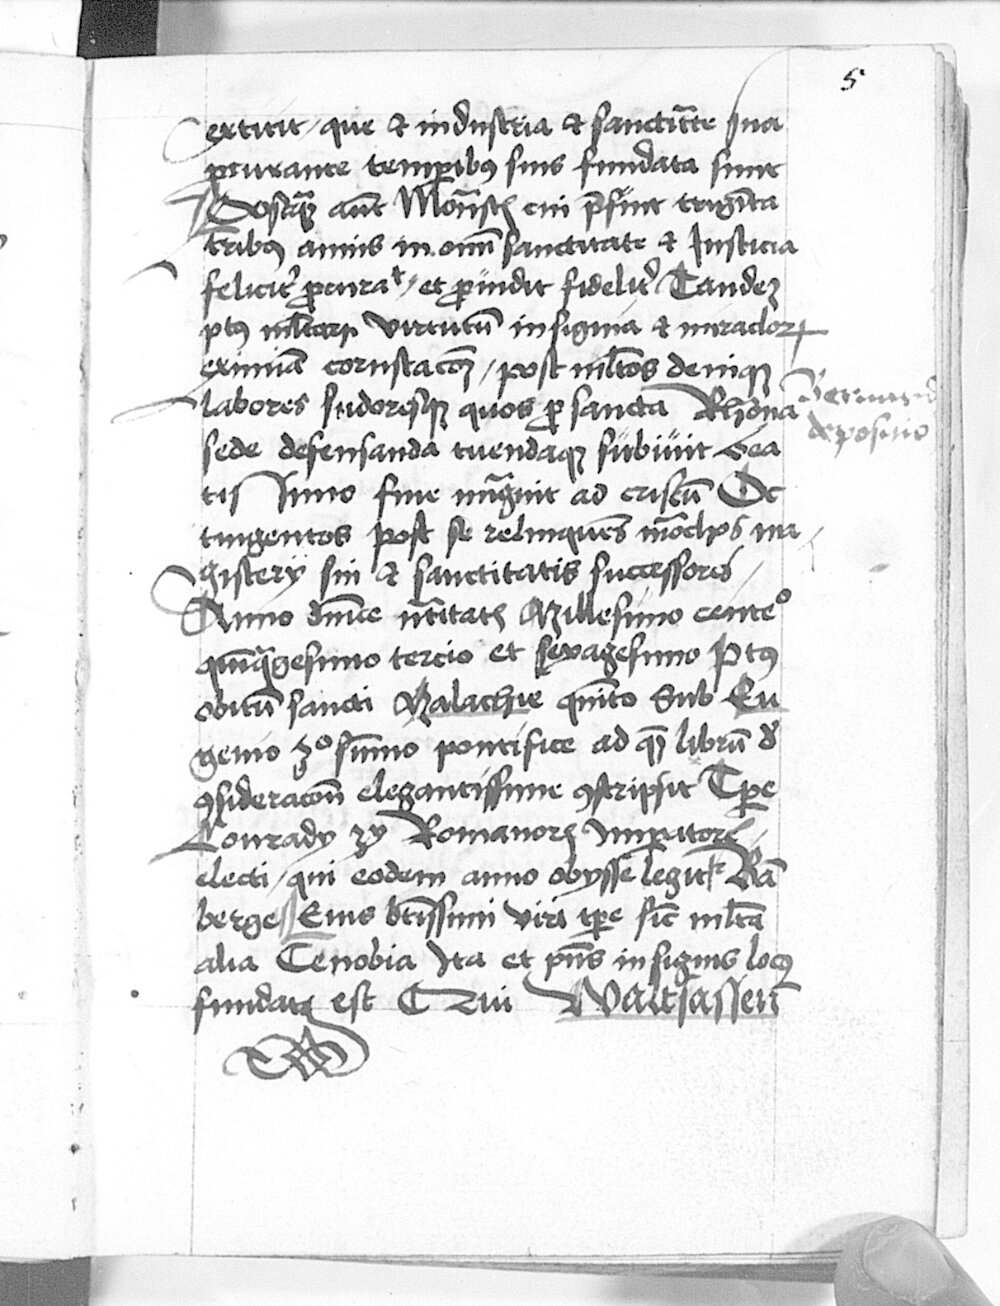 5
extitit / que et industria et sanctitate sua
procurante temporibus suis fundata sunt
Postquam autem Monasterium cui prefuit triginta
tribus annis in omni sanctitate et Iusticia
feliciter procurat / et providit fideliter Tandem
post virtutum insignia et miraculorum
eximiam coruscationem / post multos denique
labores sudoresque quos pro sancta Rhomana
sede defensanda tuendaque subiuit
Bernardi depositio
fine migravit ad cristum Oc
tingentos post se relinquens monachos ma
gisterij sui et sanctitatis successores
Anno dominice Millesimo cente°
quinquagesimo tercio et sexagesimo Post
obitum sancti Malachie quinto Sub Eu
genio 3° summo pontifice ad quem librum de
consideracione elegantissime conscripsit Tempore
Conrady 3y Romanorum Imperatoris
electi / qui eodem anno obysse legitur Bam
berge Eius beatissimi viri tempore sicut multa
alia Cenobia Ita et presens insignis locus
fundatus est Waltsassenn